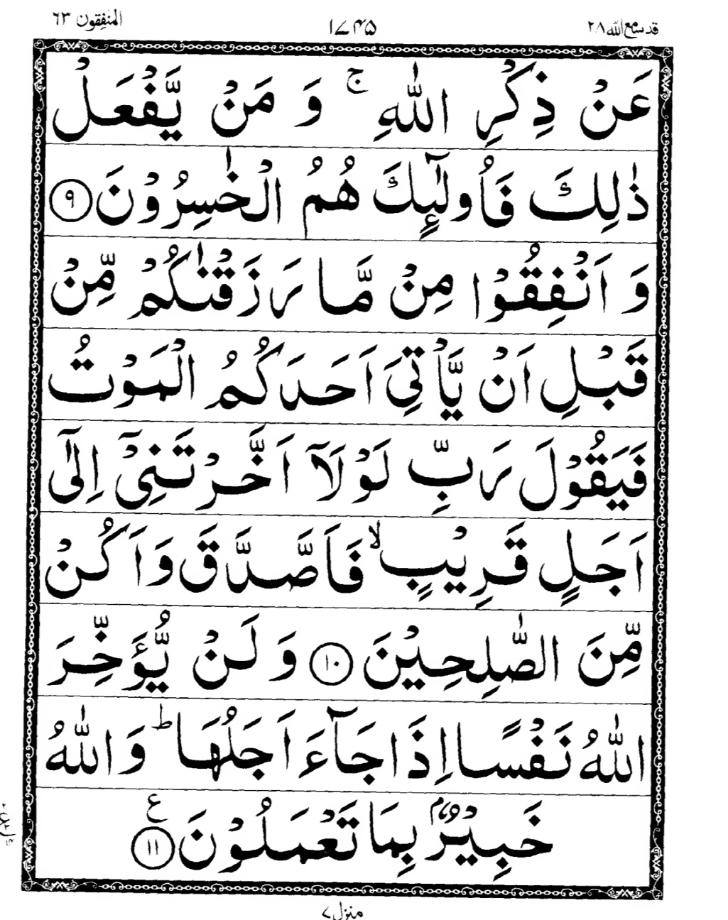 قد سمع الله ٢٨ ١٧٤٥ المنفقون ٦٣
عَنْ ذِكْرِ اللّٰهِ ۚ وَ مَنْ يَّفْعَلْ
ذٰلِكَ فَاُولٰٓئِكَ هُمُ الْخٰسِرُوْنَ ﴿٩﴾
وَ اَنْفِقُوْا مِنْ مَّا رَزَقْنٰكُمْ مِّنْ
قَبْلِ اَنْ يَّاْتِيَ اَحَدَكُمُ الْمَوْتُ
فَيَقُوْلَ رَبِّ لَوْلَاۤ اَخَّرْتَنِيْۤ اِلٰۤى
اَجَلٍ قَرِيْبٍ ۙ فَاَصَّدَّقَ وَاَكُنْ
مِّنَ الصّٰلِحِيْنَ ﴿١٠﴾ وَ لَنْ يُّؤَخِّرَ
اللّٰهُ نَفْسًا اِذَا جَآءَ اَجَلُهَا ؕ وَ اللّٰهُ
خَبِيْرٌۢ بِمَا تَعْمَلُوْنَ ﴿١١﴾ ع
منزل ٧